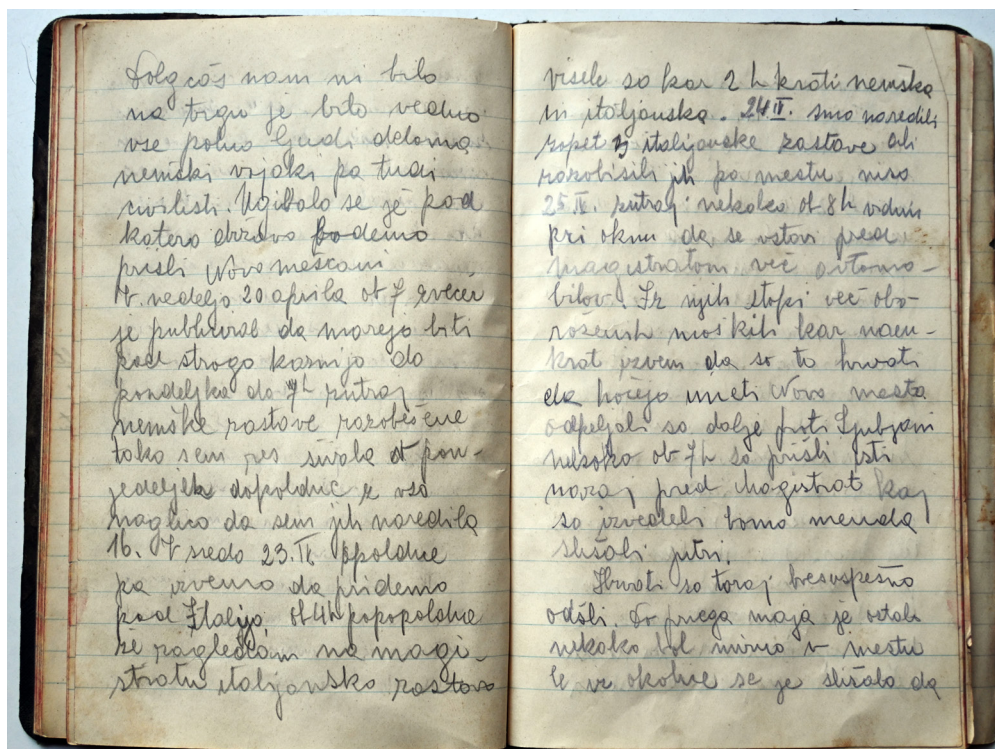 Dolg čas nam ni bilo
na trgu je bilo vedno
vse polno ljudi deloma
nemški vojaki pa tudi
civilisti. Ugibalo se je pod
katero državo bodemo
prišli Novomeščani
V nedeljo 20 aprila ob 7 zvečer
je publiciral da morejo biti
pod strogo kaznijo do
pondeljka do 7h zutraj
nemške zastave razobešene
tako sem res šivala pon-
jedeljek dopoldne z vso
naglico da sem jih naredila
16. V sredo 23.IV opoldne
pa izvemo da pridemo
pod Italijo, ob 4h popopoldne
že zagledam na magi-
stratu italjansko zastavo
visele so kar 2 h krati nemška
in italjanska. 24 IV. smo naredili
zopet italijanske zastave ali
razobisili jih po mestu niso
25 IV. zutraj nekako ob 8h vidim
pri oknu da se ustavi pred
magistratom več avtomo-
bilov. Iz njih stopi več obo-
roženih moških kar naen-
krat izvem da so to hrvati
da hočejo imeti Novo mesto
odpeljali so dalje proti Ljubljani
nekako ob 7h so prišli isti
nazaj pred Magistrat kaj
so izvedeli bomo menda
slišali jutri
Hrvati so toraj bresuspešno
odšli. Do prvega maja je ostalo
nekako bol mirno v mestu
le iz okolice se je slišalo da